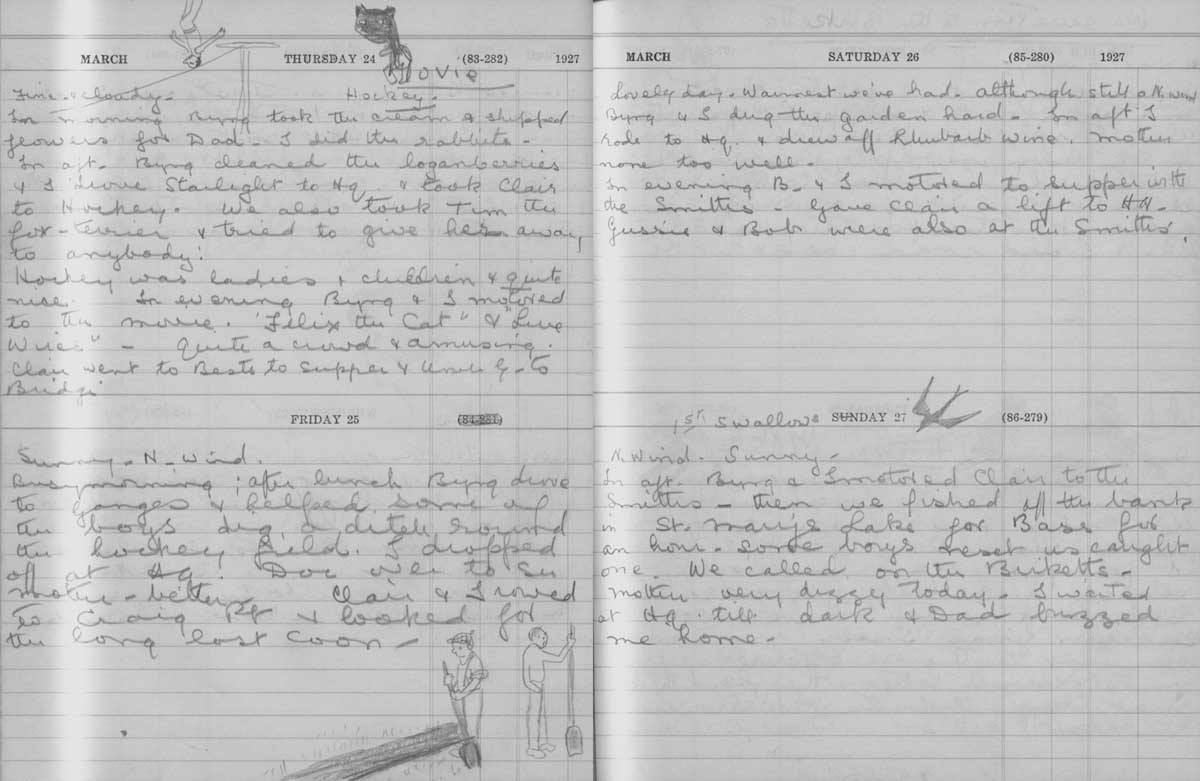 MARCH THURSDAY 24 (83-282) 1927
Movie
Fine & cloudy. Hockey.
In morning Byng took the cream & shipped
flowers for Dad. I did the rabbits.
In aft. Byng cleaned the loganberries
& I drove Starlight to Hq. & took Clair
to Hockey. We also took Tim the
fox-terrier & tried to give her away
to anybody!
Hockey was ladies & children & quite
nice. In evening Byng & I motored
to the movie. "Felix the Cat" & "
Wires" - Quite a crowd & amusing.
Clair went to Bests to supper & Uncle G- to
Bridge
FRIDAY 25 (84-281)
Sunny - N. Wind.
Busy morning; after lunch Byng drove
to Ganges & helped some of
the boys dig a ditch round
the hockey field. I dropped
off at Hq. Doc over to see
Mother - better. Clair & I rowed
to Craig Pt & looked for
the long lost coon -
MARCH SATURDAY 26 (85-280) 1927
Lovely day. Warmest we've had. although still a N. wind
Byng & I dug the garden hard. In aft I
rode to Hq. & drew off Rhubarb wine. Mother
none too well.
In evening B. & I motored to supper with
the Smiths - Gave Clair a lift to HH-
Gussie & Bob were also at the Smiths.
1st Swallows SUNDAY 27 (86-279)
N. Wind. Sunny -
In aft. Byng & I motored Clair to the
Smiths - then we fished off the bank
in St. Mary's Lake for Bass for
an hour. some boys next us caught
one. We called on the Birketts -
Mother very dizzy today. I waited
at Hq. till dark & Dad buzzed
me home.